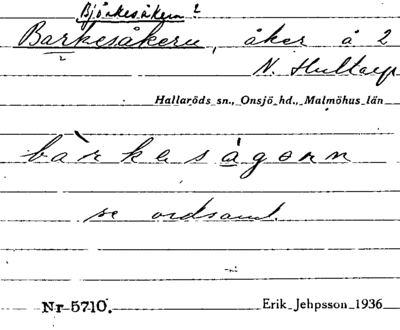 Björkesåkern?
Barkesåkern, åker å 2
?
N. Hultarp
Hallaröds sn., Onsjö hd., Malmöhus län
bàrkesågonn
se ordsaml.
Nr 5710. Erik Jehpsson 1936